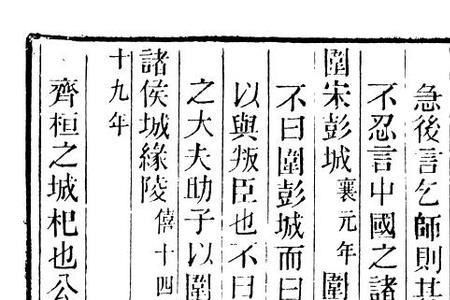 急後言乞師則其
不忍言中國之諸
圍宋彭城襄元年圍
不曰圍彭城而曰
以與叛臣也不曰
之大夫助子以圍
諸侯城緣陵僖十四
十九年
齊桓之城杞也公